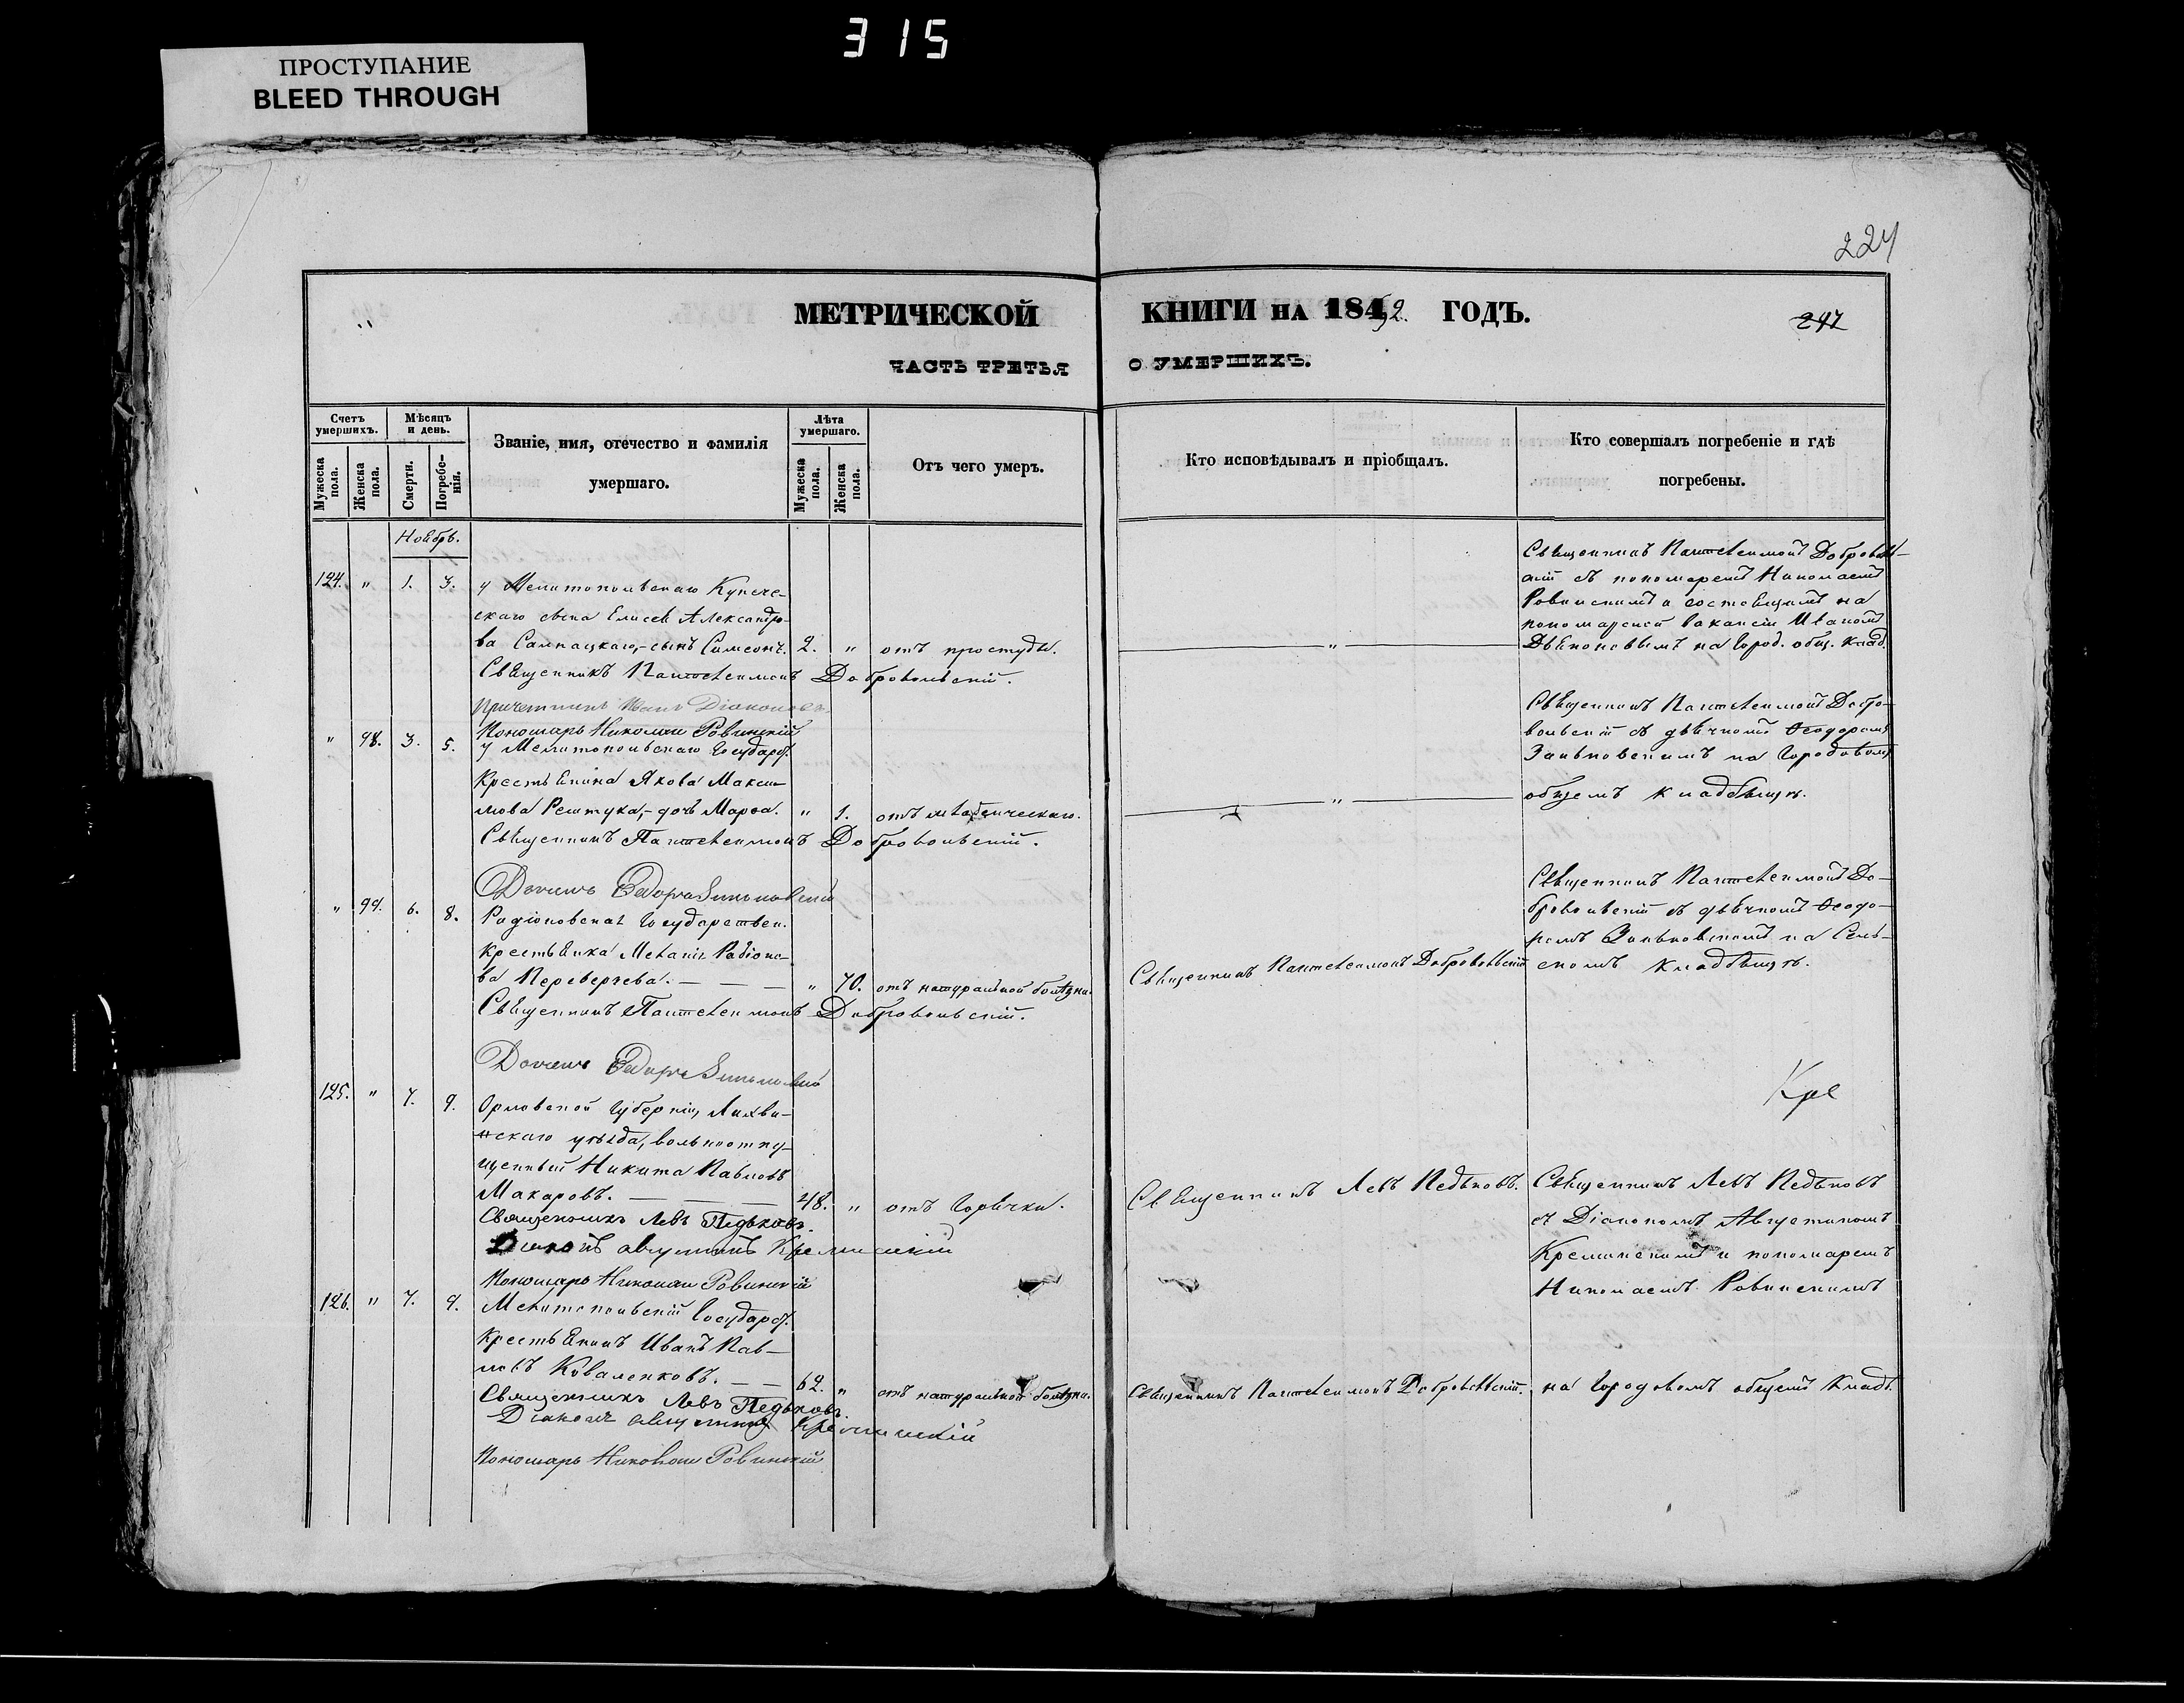 315
ПРОСТУПАНИЕ
BLEED THROUGH
224
МЕТРИЧЕСКОЙ КНИГИ НА 1852. ГОДЪ.
247
ЧАСТЬ ТРЕТЬЯ О УМЕРШИХЪ.
Счетъ умершихъ.
Мужеска пола.
Женска пола.
Мѣсяцъ и день.
Смерти.
Погребенія.
Званіе, имя, отечество и фамилія
умершаго.
Лѣта умершаго.
Мужеска пола.
Женска пола.
Отъ чего умеръ.
Кто исповѣдывалъ и пріобщалъ.
Кто совершалъ погребеніе и гдѣ
погребены.
Ноябрь.
124. " 1. 3. у Мелитопольскаго Купече-
скаго сына Елисея Александро-
ва Сампацкаго,- сынъ Симеонъ. 2. " отъ простуды. "
Священникъ Пантелеимонъ Добровольскій.
Причетникъ Иванъ Діаконовъ
Пономарь Николай Ровинскій
Священникъ Пантелеимонъ Доброволь-
скій съ пономаремъ Николаемъ
Ровинскимъ и состоящимъ на
пономарской вакансіи Иваномъ
Дьяконовымъ на Город. общ. клад.
" 98. 3. 5. у Мелитопольскаго Государ.
Крестьянина Якова Макси-
мова Рештука,- дочь Марѳа. " 1. отъ младенческаго. "
Священникъ Пантелеимонъ Добровольскій.
Священникъ Пантелеимонъ Добро-
вольскій съ дьячкомъ Ѳеодоромъ
Заньковскимъ на Городовомъ
общемъ кладбищѣ.
" 99. 6. 8. Радіоновская Государствен.
Крестьянка Меланія Радіоно-
ва Переверчева. " 70. отъ натуральной болѣзни. Священникъ Пантелеимонъ Добровольскій
Священникъ Пантелеимонъ Добровольскій.
Священникъ Пантелеимонъ До-
бровольскій съ дьячкомъ Ѳеодо-
ромъ Заньковскимъ на Сель-
скомъ кладбищѣ.
125. " 7. 9. Орловской Губерніи, Лихви-
нскаго уѣзда, вольноотпу-
щенный Никита Павловъ
Макаровъ. 48. " отъ Горячки. Священникъ Левъ Педьковъ.
Священникъ Левъ Педьковъ.
Діаконъ Августинъ Кременскій
Пономарь Николай Ровинскій
Кре
Священникъ Левъ Педьковъ
съ Діакономъ Августиномъ
Кременскимъ и пономаремъ
Николаемъ Ровинскимъ
126. " 7. 9. Мелитопольскій Государ.
Крестьянинъ Иванъ Пав-
ловъ Коваленковъ. 62. " отъ натуральной болѣзни. Священникъ Пантелеимонъ Добровольскій. на Городовомъ общемъ Кладб.
Священникъ Левъ Педьковъ.
Діаконъ Августинъ Кременскій
Пономарь Николай Ровинскій